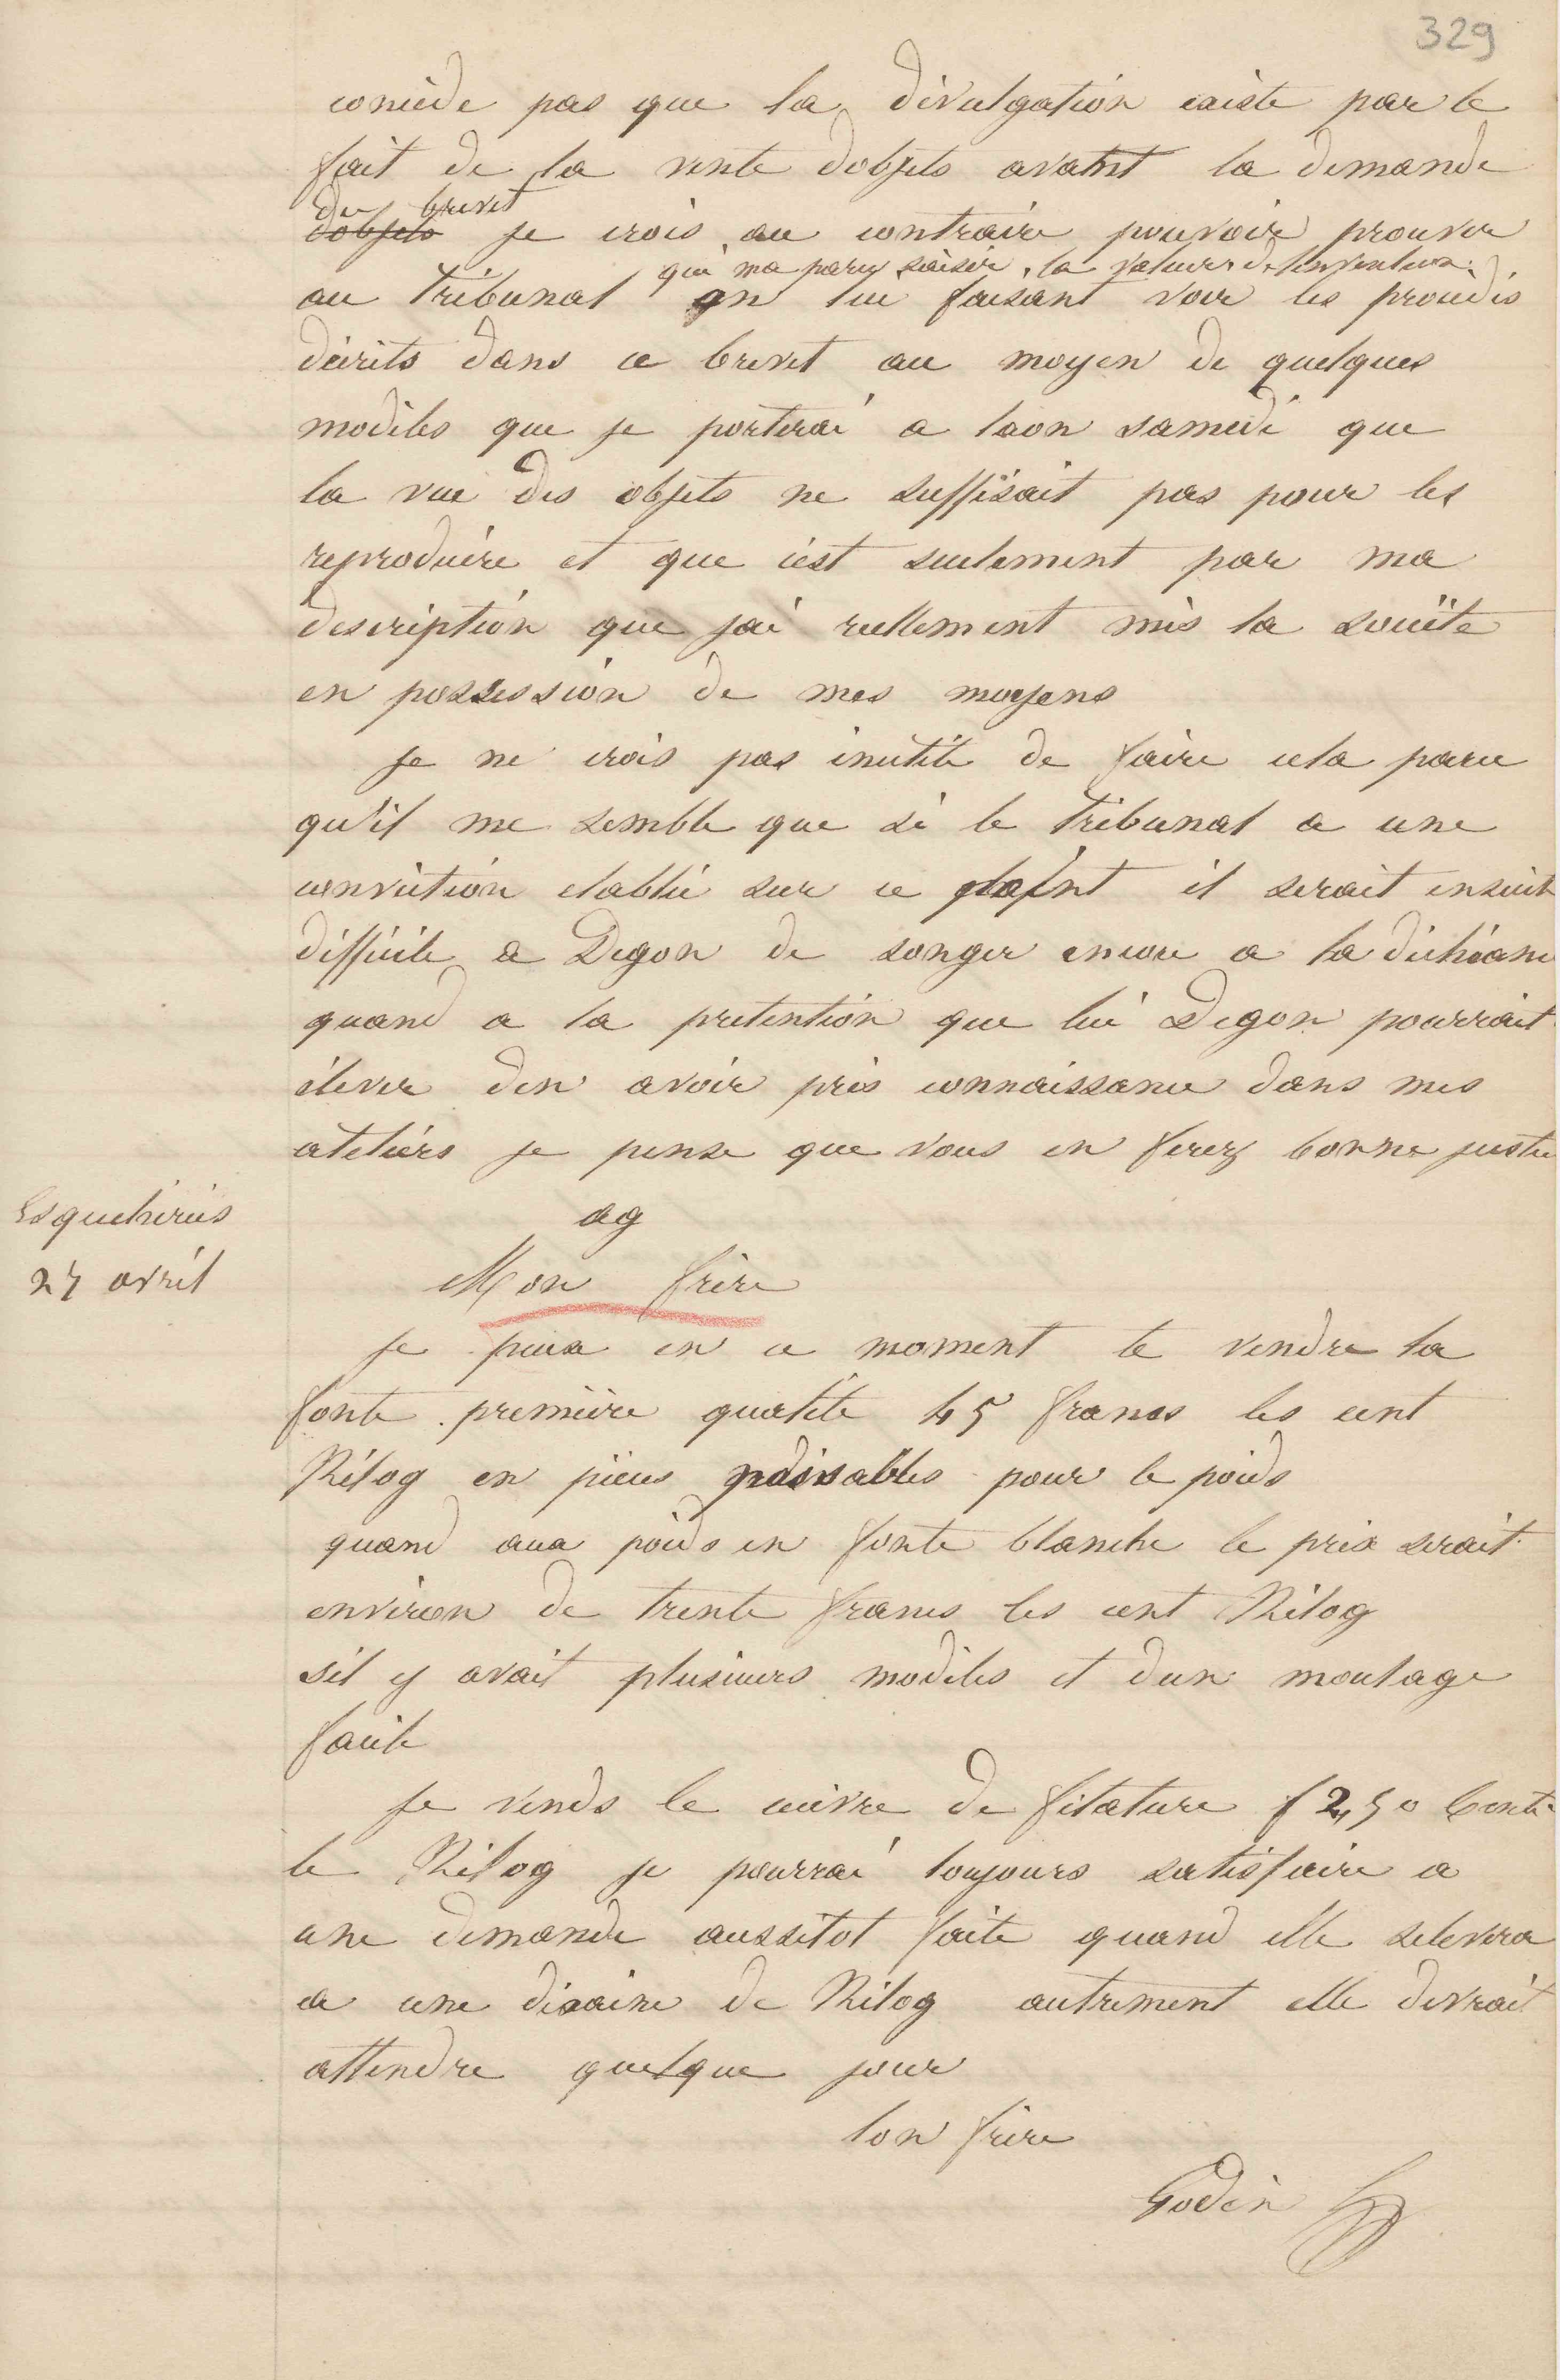 329
concède pas que la divulgation existe par le
fait de la vente dobjets avant la demande
du brevet
dobjets je crois au contraire pouvoir prouver
qui ma paru saisir la valeur de linvention
au Tribunal en lui faisant voir les procédés
décrits dans ce brevet au moyen de quelques
modèles que je porterai a laon samedi que
la vue des objets ne suffisait pas pour les
reproduire et que c'est seulement par ma
description que jai reellement mis la société
en possession de mes moyens
je ne crois pas inutile de faire cela parce
qu'il me semble que si le tribunal a une
conviction etablie sur ce point il serait ensuite
difficile a Degon de songer encore a la déchéance
quand a la pretention que lui Degon pourrait
élever den avoir pris connaissance dans mes
ateliers je pense que vous en ferez bonne justice
ag
Esqueheries
27 avril
Mon frère
je peux en ce moment te vendre la
fonte première qualité 45 francs les cent
Kilog en pièces pour le poids
quand aux poids en fonte blanche le prix serait
environ de trente francs les cent Kilog
sil y avait plusieurs modèles et dun moulage
facile
je vends le cuivre de filature f 2,50 Cent
le Kilog je pourrai toujours satisfaire a
une demande aussitot faite quand elle selevera
a une dixaine de Kilog autrement elle devrait
attendre quelque jour
ton frère
Godin